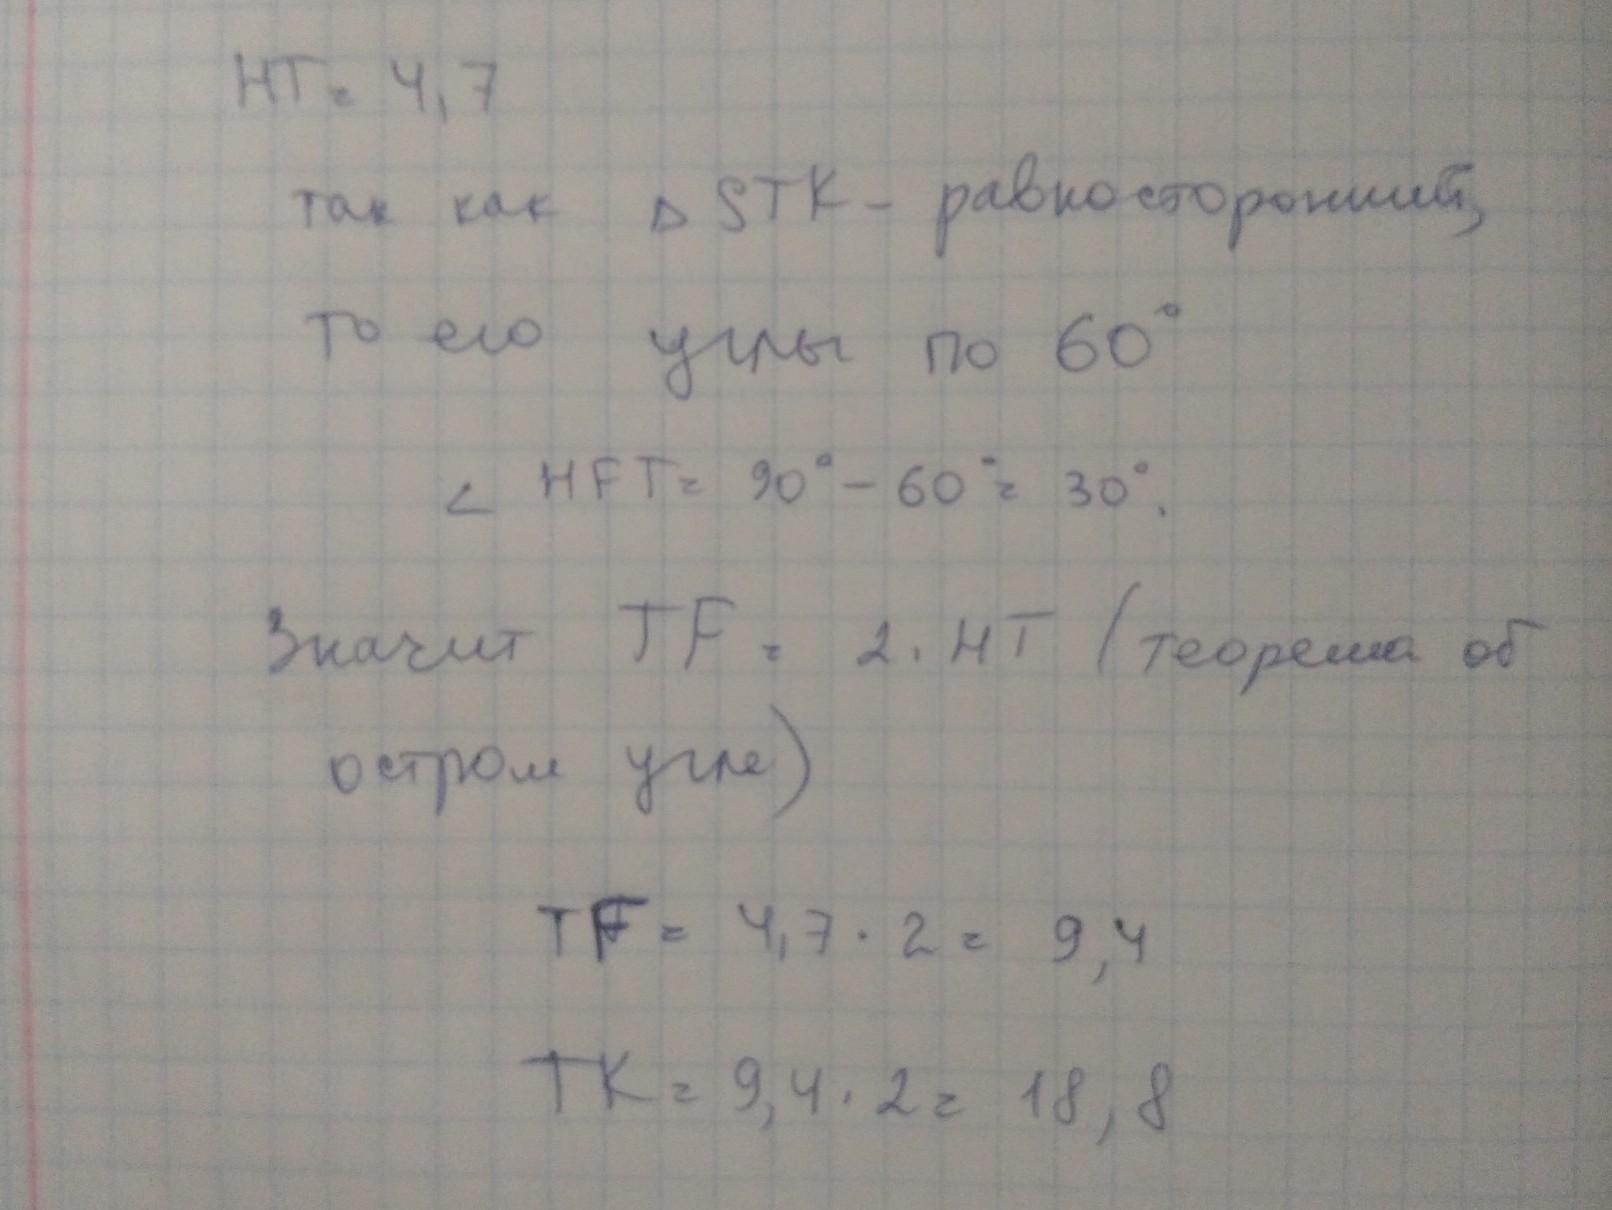 HT = 4,7
так как △ STK - равносторонний,
то его углы по 60°
∠ HFT = 90° - 60° = 30°.
Значит TF = 2 · HT (теорема об
остром угле)
TF = 4,7 · 2 = 9,4
TK = 9,4 · 2 = 18,8